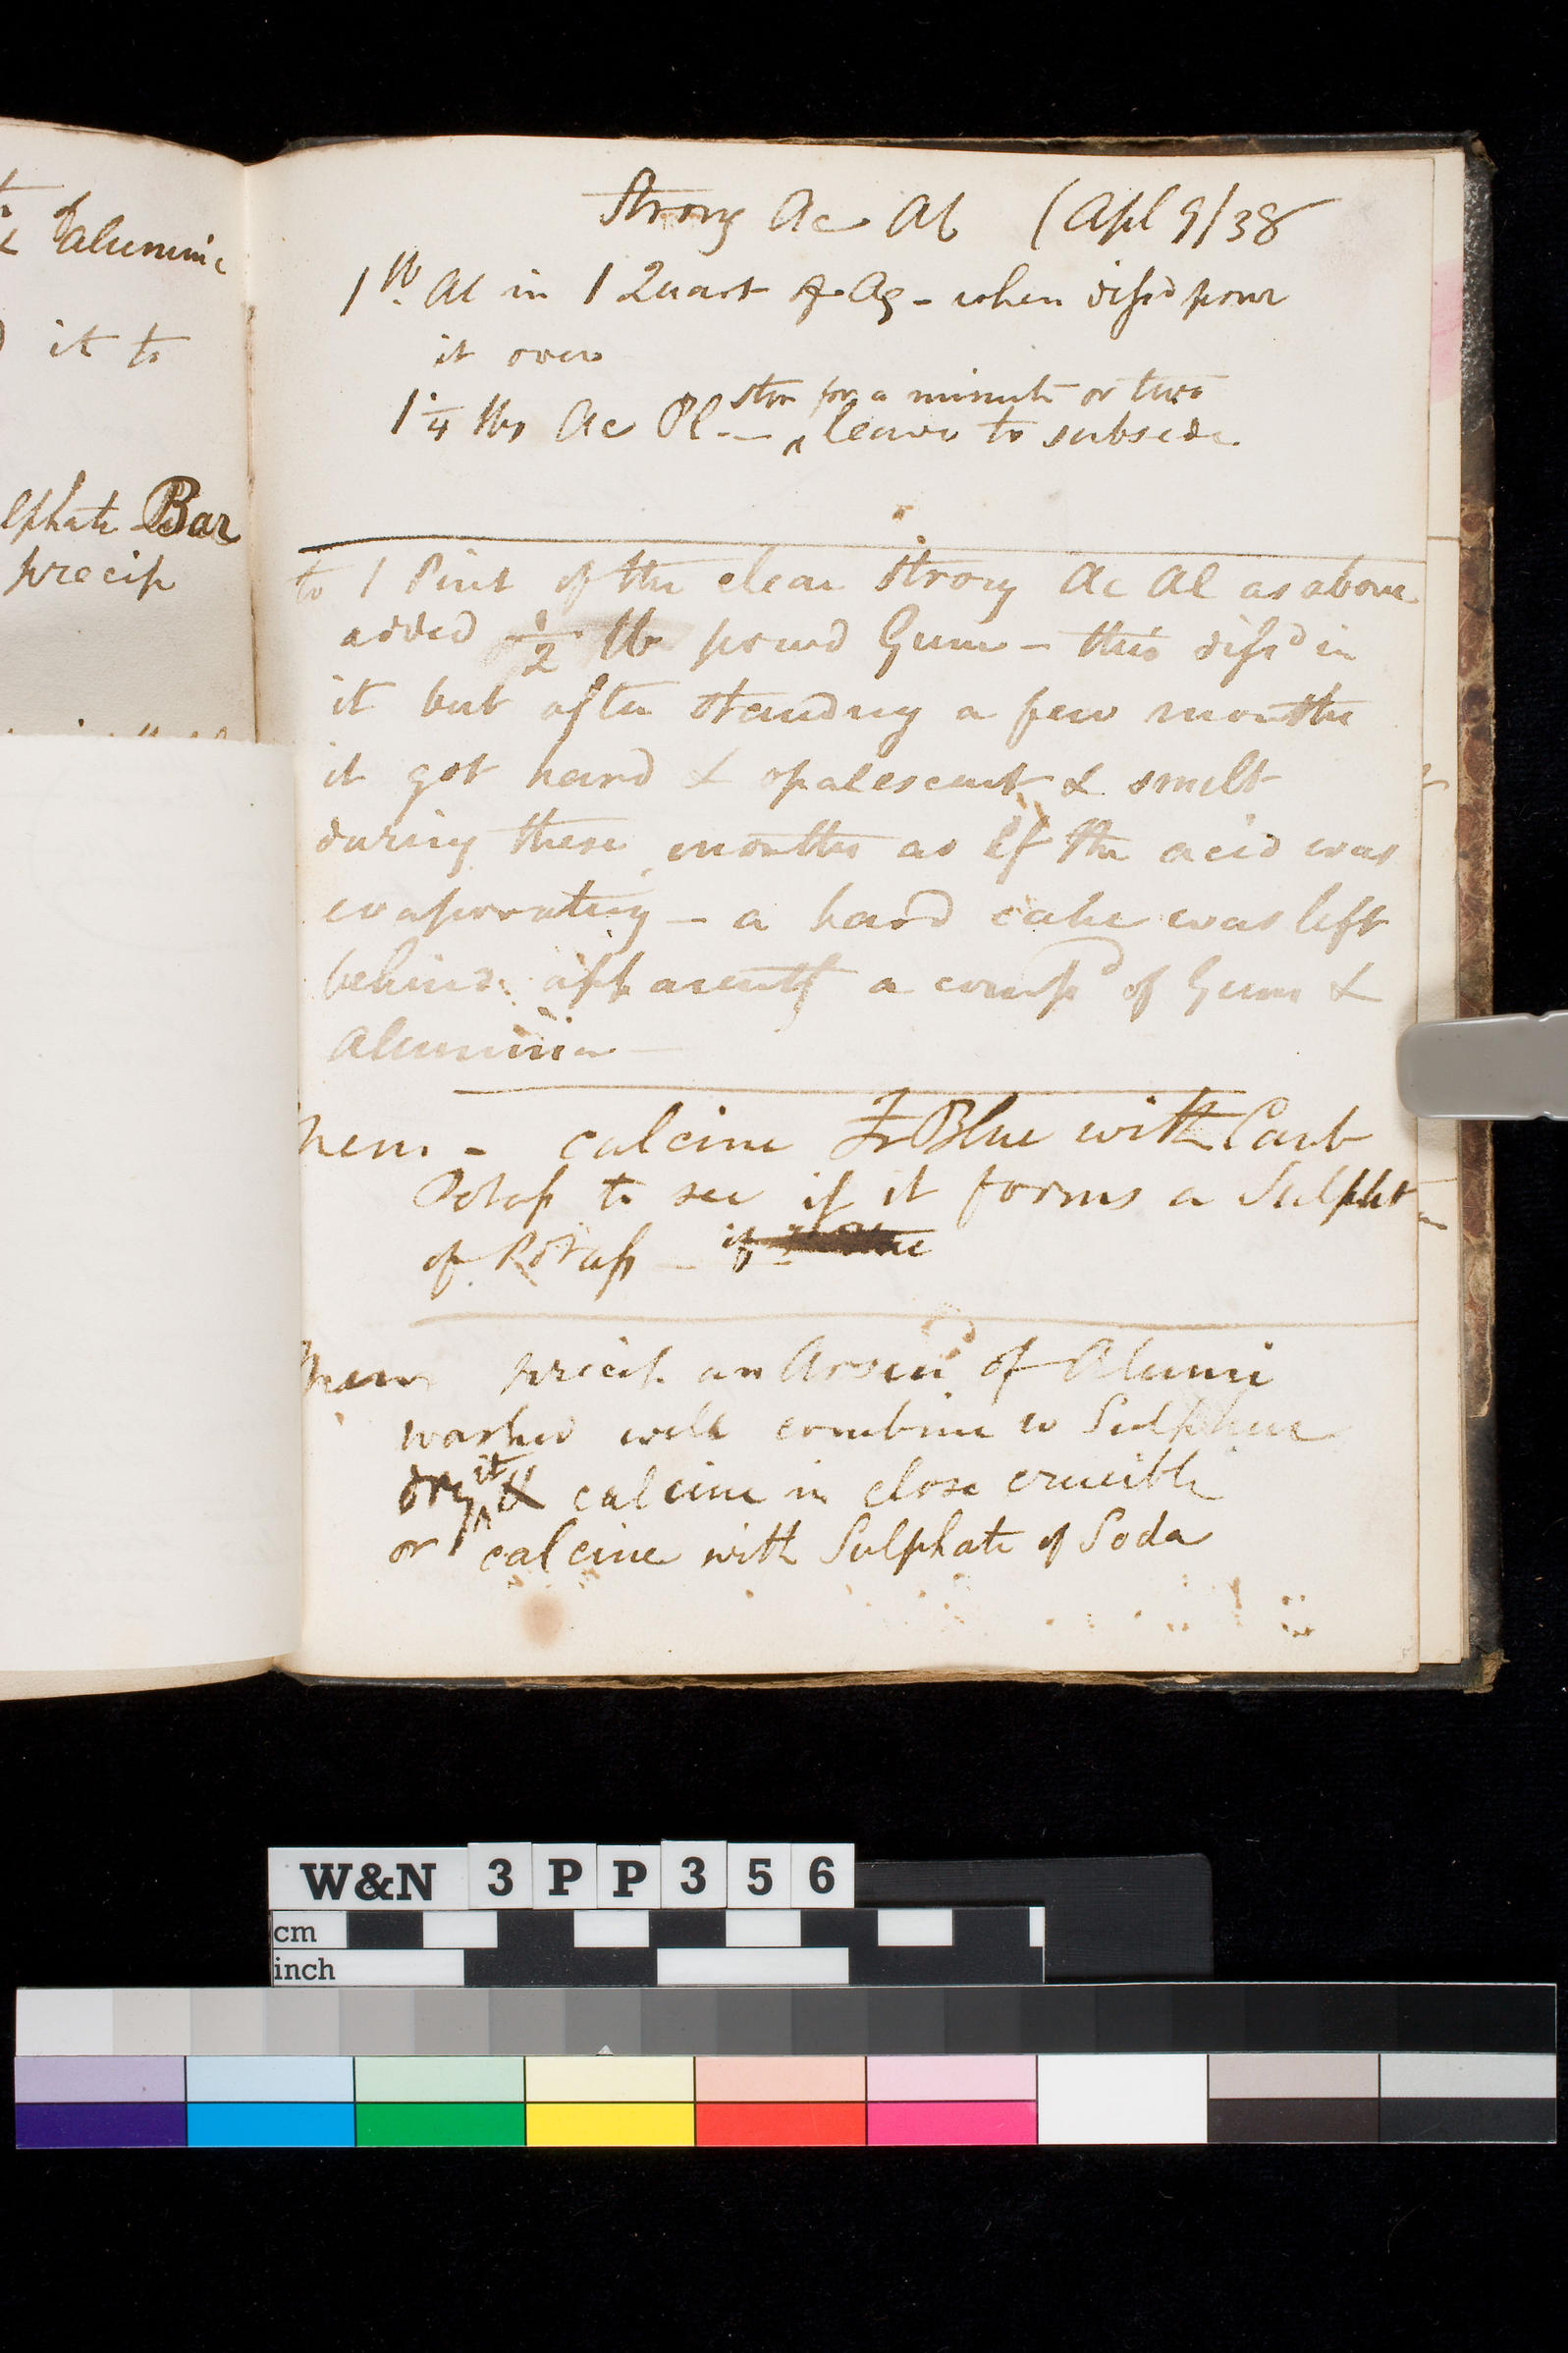 aluminᵃ
it to
lphate Bar
precip
Strong Ac Al (Apl 9/38
1 lb. Al in 1 Quart Aq - when dissd pour
it over
stir for a minute or two
1 1/4 lbs Ac Pl - ^ leave to subside
to 1 Pint of the clear strong Ac Al as above
added 1/2 lb powd Gum - this dissd in
it but after standing a few months
it got hard & opalescent & smelt
during these months as if the acid was
evaporating - a hard cake was left
behind apparently a compd of Gum &
Alumina
Mem - calcine Fr Blue with Carb
Potass to see if it forms a Sulpht
of Potass - if
Mem precip. an Arsen of Alumi
washed well combine w Sulphur
it
dry ^ & calcine in close crucible
or calcine with Sulphate of Soda
W&N 3PP356
cm
inch